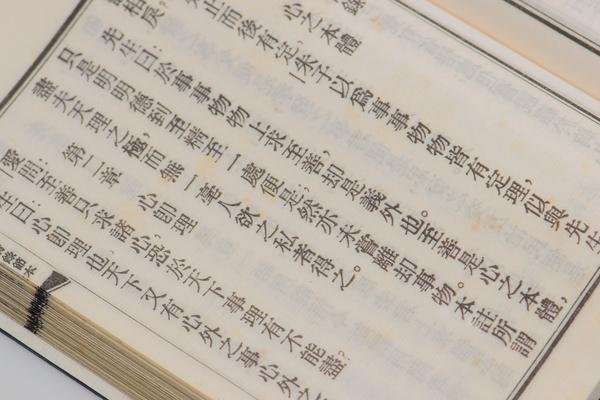 錄
心之本體
止而後有定,朱子以爲事事物物皆有定理,似與先生
相戾。
先生曰:於事事物物上求至善,却是義外也。至善是心之本體,
只是明明德到至精至一處便是;然亦未嘗離却事物。本註所謂
盡夫天理之極,而無一毫人欲之私者得之。
第二章 心即理
愛問:至善只求諸心,恐於天下事理有不能盡?
生曰:心即理也天下又有心外之事心外之